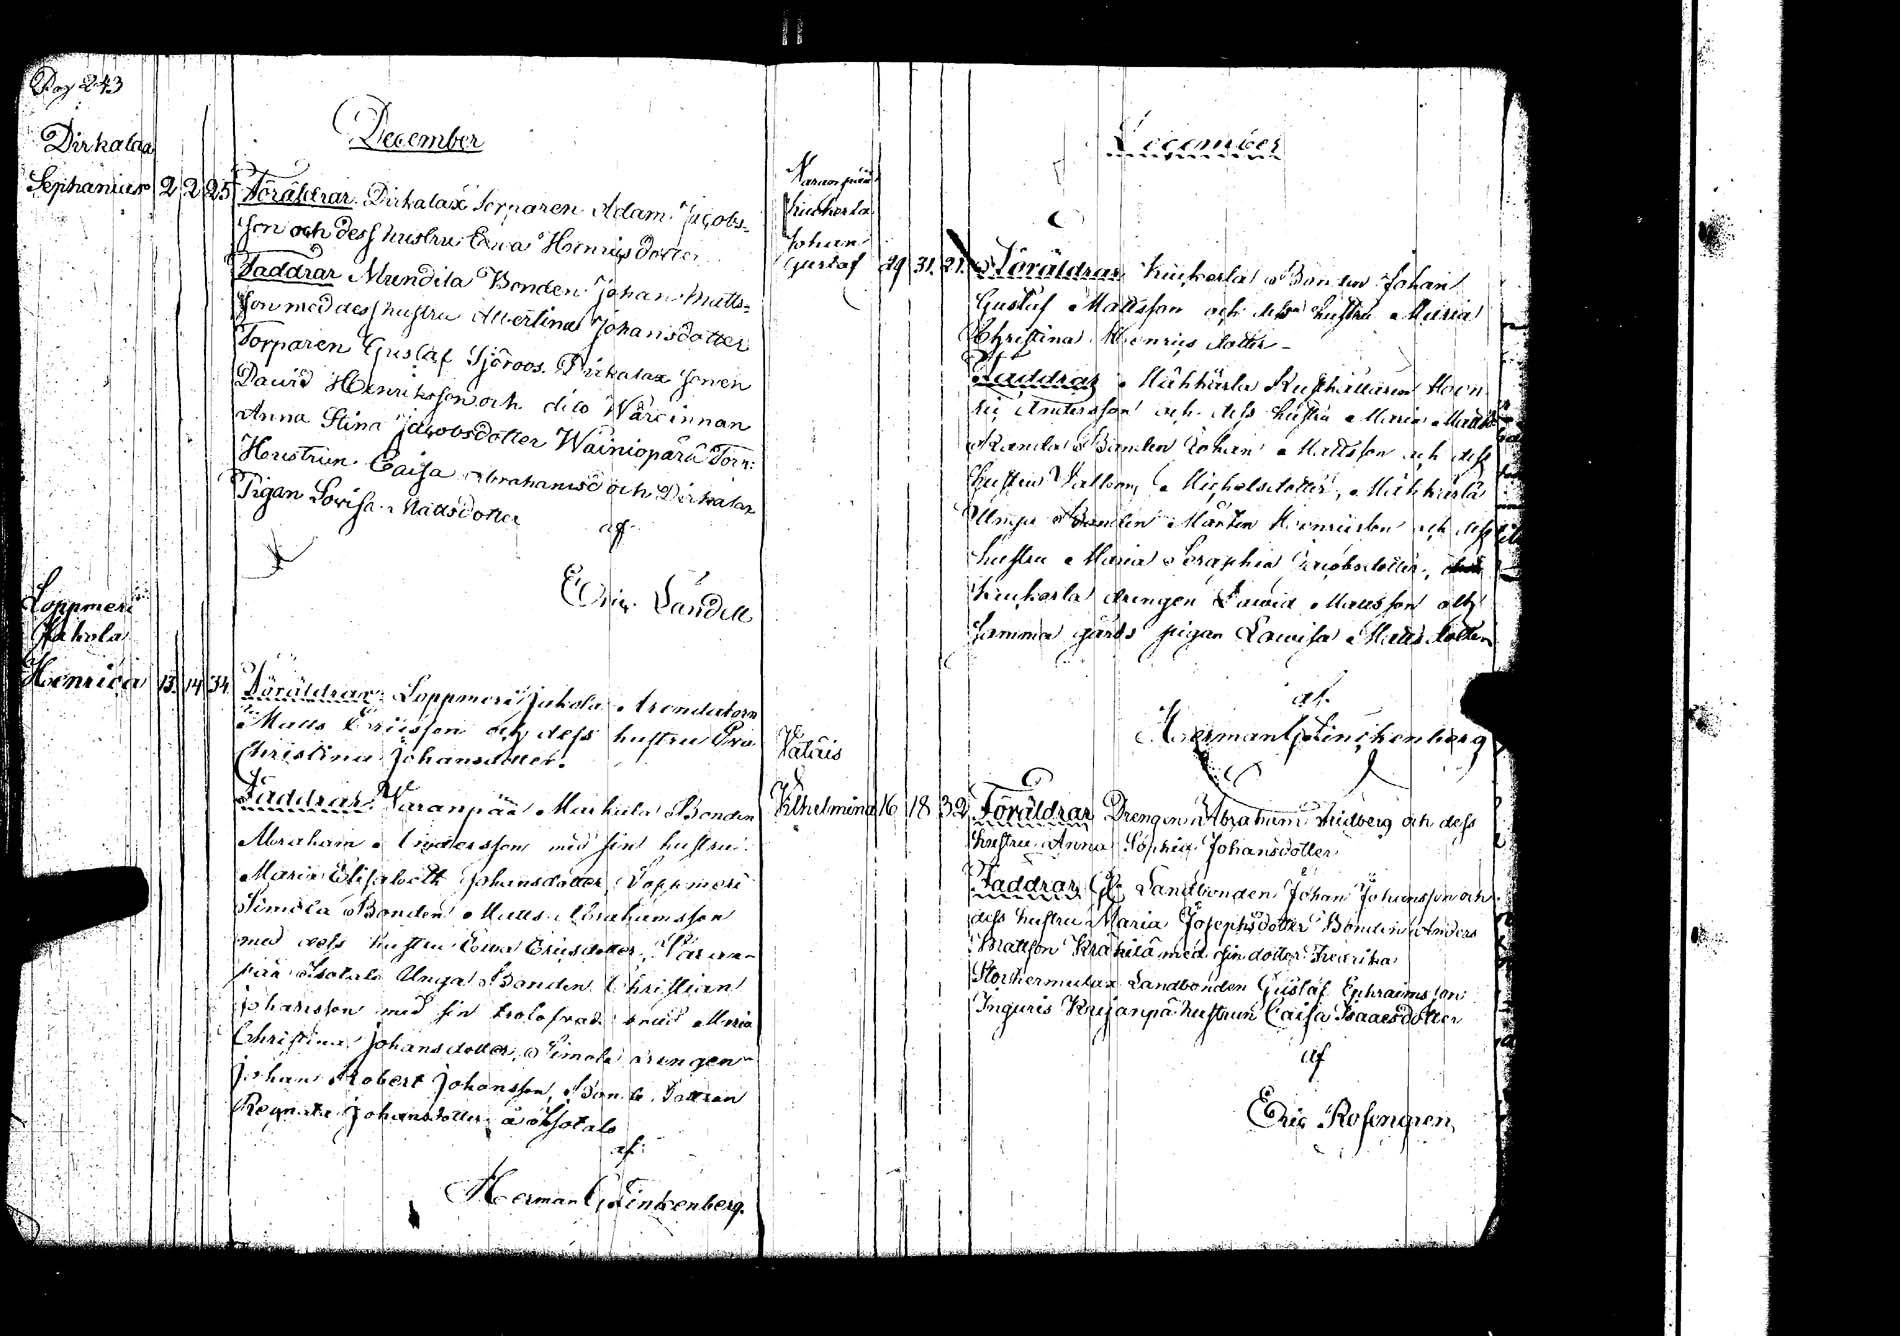 Pag 243
December
Dirkalax
Sephanias 2 2 25 Föräldrar. Dirkalax Torparen Adam Jacobs=
son och dess hustru Ewa Henricsdotter
Faddrar Mundila Bonden Johan Matts=
son med dess hustru Albertina Johansdotter
Torparen Gustaf Sjöroos. Dirkalax sonen
David Henriksson och dito Wärdinnan
Anna Stina Jacobsdotter Wainiopärä Torp:
Hustrun Caisa Abrahamsd och Dirkalax
Pigan Lovisa Mattsdotter
af
Eric Landell
Loppmeri
Jakola
Henrica 13. 14 34. Föräldrar: Loppmeri Jakola Arendatorn
Matts Ericsson och dess hustru Eva
Christina Johansdotter.
Faddrar. Varanpää Markula Bonden
Abraham Andersson med sin hustru
Maria Elisabeth Johansdotter Loppmeri
Simola Bonden Matts Abrahamsson
med dess hustru Ewa Ericsdotter,
Isotalo Unga Bonden Christian
Johansson med sin trolofvade brud Maria
Christina Johansdotter, Simola drengen
Johan Robert Johansson, Bonde Dottren
Johansdotter å Isotalo
af
Herman G Linkenberg.
December
Varanpää
Kiukerla
Johan
Gustaf 29 31. 21. Föräldrar Kiukerla Bonden Johan
Gustaf Mattsson och dess hustru Maria
Christina Henrics dotter
Faddrar Andersson och dess hustru Maria
Bonden Johan Mattsson och dess
hustru Michelsdotter,
Unga Bonden Mårten Henricsson och dess
hustru Maria Seraphia Jacobsdotter,
Kiukerla drengen David Mattsson och
samma gårds pigan Lawisa Matts dotter
af
Herman G Linckenberg
Vilhelmina 16 18 32 Föräldrar Drengen Abraham Lidberg och dess
hustru Anna Sophia Johansdotter
Faddrar Landbonden Johan Johansson och
dess hustru Maria Josephsdotter Bonden Anders
Mattson Krakila med sin dotter Fredrika
Landbonden Gustaf Ephraimsson
Inguris hustrun Caisa Isaacsdotter
af
Eric Rosengren